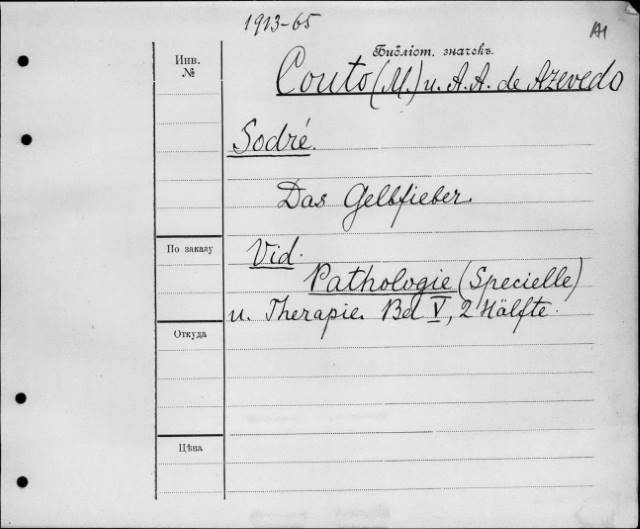 1913-65
Библіот. значекъ.
Инв.
№
Couto (M.) u. A. A. de Azevedo
Sodré.
Das Gelbfieber.
По заказу
Vid.
Pathologie (Specielle)
u. Therapie. Bd V, 2 Hälfte.
Откуда
Цѣна